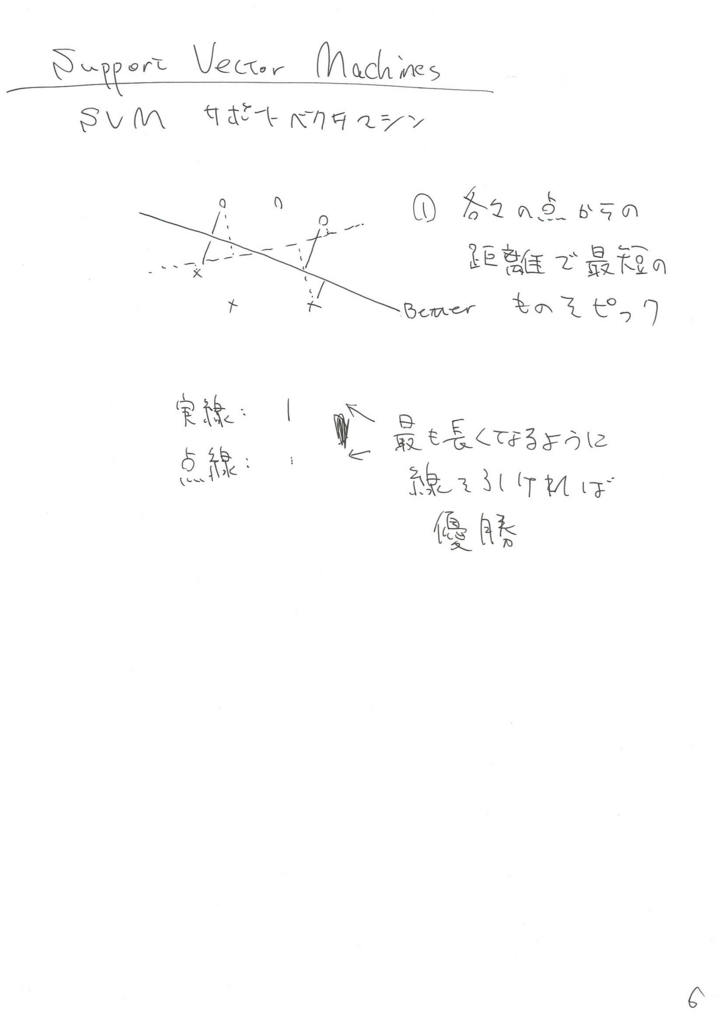 Support Vector Machines
SVM サポートベクタマシン
① 各々の点からの
距離で最短の
ものをピック
Better
実線：
点線：
最も長くてなるように
線を引ければ
優勝
6